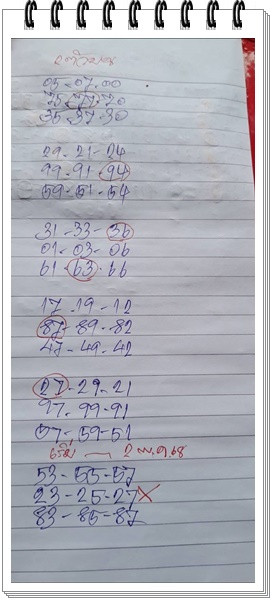 2ตัวบน
05.07.00
75.77.70
35.37.30
29-21-24
99-91-94
59-51-54
31-33-36
01-03-06
61-63-66
17.19-12
87-89-82
47-49-42
27-29-21
97-99-91
57-59-51
เริ่ม — 2 พ.ค.68
53-55-57
23-25-27 X
83-85-87